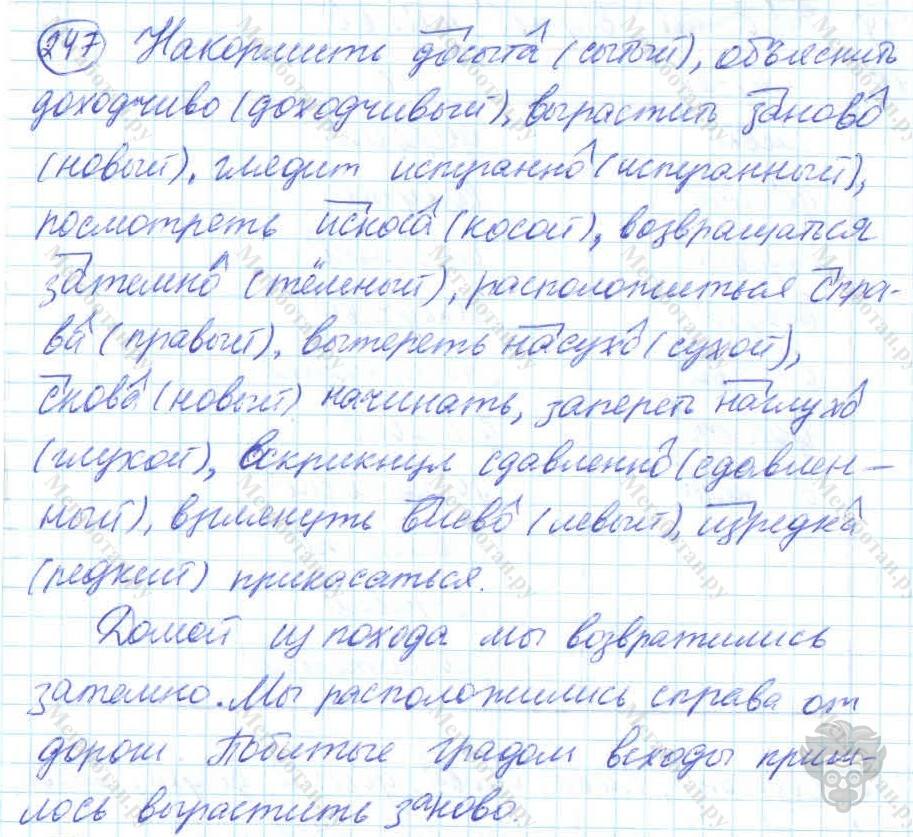 247 Накормить досыта (сытый), объяснить
доходчиво (доходчивый), вырастить заново
(новый), глядит испуганно (испуганный),
посмотреть искоса (косой), возвращаться
затемно (тёмный), расположиться спра-
ва (правый), вытереть насухо (сухой),
снова (новый) начинать, запереть наглухо
(глухой), вскрикнул сдавленно (сдавлен-
ный), взглянуть влево (левый), изредка
(редкий) прикасаться.
Домой из похода мы возвратились
затемно. Мы расположились справа от
дороги. Побитые градом всходы приш-
лось вырастить заново.